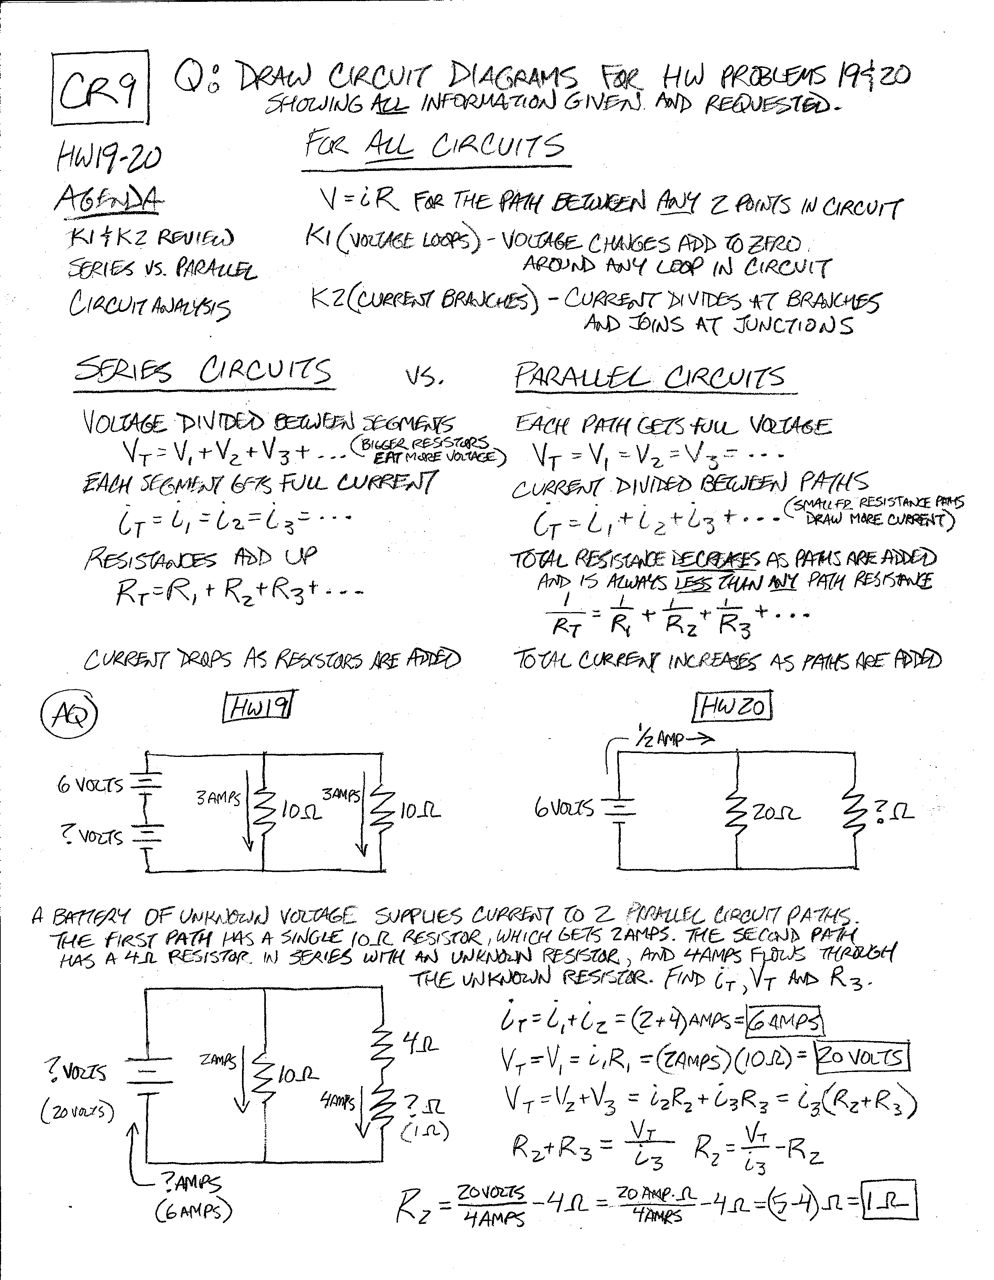 CR9
Q: DRAW CIRCUIT DIAGRAMS FOR HW PROBLEMS 19 & 20
SHOWING ALL INFORMATION GIVEN AND REQUESTED.
HW19-20
AGENDA
K1 & K2 REVIEW
SERIES VS. PARALLEL
CIRCUIT ANALYSIS
FOR ALL CIRCUITS
V = iR FOR THE PATH BETWEEN ANY 2 POINTS IN CIRCUIT
K1 (VOLTAGE LOOPS) - VOLTAGE CHANGES ADD TO ZERO
AROUND ANY LOOP IN CIRCUIT
K2 (CURRENT BRANCHES) - CURRENT DIVIDES AT BRANCHES
AND JOINS AT JUNCTIONS
SERIES CIRCUITS VS. PARALLEL CIRCUITS
VOLTAGE DIVIDED BETWEEN SEGMENTS
V_T = V_1 + V_2 + V_3 + ... (BIGGER RESISTORS
EAT MORE VOLTAGE)
EACH SEGMENT GETS FULL CURRENT
i_T = i_1 = i_2 = i_3 = ...
RESISTANCES ADD UP
R_T = R_1 + R_2 + R_3 + ...
CURRENT DROPS AS RESISTORS ARE ADDED
EACH PATH GETS FULL VOLTAGE
V_T = V_1 = V_2 = V_3 = ...
CURRENT DIVIDED BETWEEN PATHS
i_T = i_1 + i_2 + i_3 + ... (SMALLER RESISTANCE PATHS
DRAW MORE CURRENT)
TOTAL RESISTANCE DECREASES AS PATHS ARE ADDED
AND IS ALWAYS LESS THAN ANY PATH RESISTANCE
1/R_T = 1/R_1 + 1/R_2 + 1/R_3 + ...
TOTAL CURRENT INCREASES AS PATHS ARE ADDED
AQ
HW19
6 VOLTS
? VOLTS
3 AMPS
10Ω
3 AMPS
10Ω
HW20
1/2 AMP →
6 VOLTS
20Ω
? Ω
A BATTERY OF UNKNOWN VOLTAGE SUPPLIES CURRENT TO 2 PARALLEL CIRCUIT PATHS.
THE FIRST PATH HAS A SINGLE 10Ω RESISTOR, WHICH GETS 2AMPS. THE SECOND PATH
HAS A 4Ω RESISTOR IN SERIES WITH AN UNKNOWN RESISTOR, AND 4AMPS FLOWS THROUGH
THE UNKNOWN RESISTOR. FIND i_T, V_T AND R_3.
? VOLTS
(20 VOLTS)
2AMPS
10Ω
4Ω
4AMPS
? Ω
(1Ω)
? AMPS
(6 AMPS)
i_T = i_1 + i_2 = (2+4) AMPS = 6 AMPS
V_T = V_1 = i_1R_1 = (2AMPS)(10Ω) = 20 VOLTS
V_T = V_2 + V_3 = i_2R_2 + i_3R_3 = i_3(R_2 + R_3)
R_2 + R_3 = V_T/i_3 R_2 = V_T/i_3 - R_2
R_2 = 20 VOLTS/4 AMPS - 4Ω = 20 AMP·Ω/4AMPS - 4Ω = (5-4)Ω = 1Ω